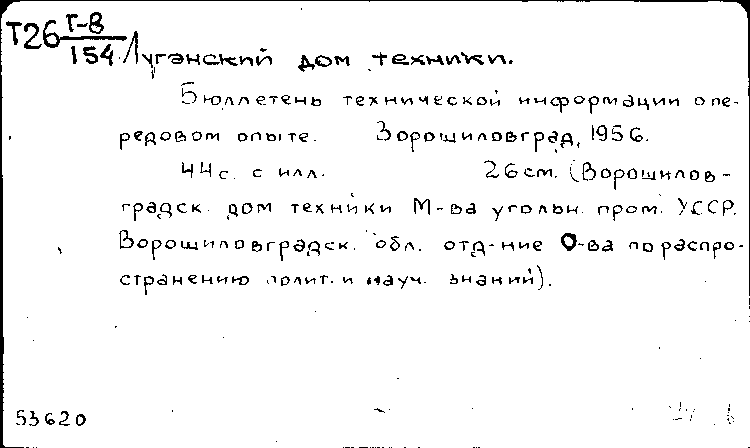 Т26 Г-8/154 Луганский дом техники.
Бюллетень технической информации о пе-
редовом опыте. Ворошиловград, 1956.
44 с. с илл. 26 см. (Ворошилов-
градск. дом техники М-ва угольн. пром. УССР.
Ворошиловградск. обл. отд-ние О-ва по распро-
странению полит. и науч. знаний).
53620